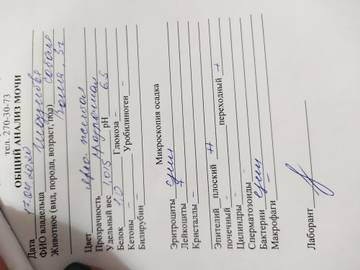 тел. 270-30-73
ОБЩИЙ АНАЛИЗ МОЧИ
Дата
ФИО владельца
Животное (вид, порода, возраст, пол) собака
Цвет ярко желтая
Прозрачность
Удельный вес 1,015 pH 6,5
Белок 1,0 Глюкоза -
Кетоны - Уробилиноген -
Билирубин -
Микроскопия осадка
Эритроциты един
Лейкоциты -
Кристаллы -
Эпителий плоский + переходный +
почечный -
Цилиндры -
Сперматозоиды -
Бактерии един
Макрофаги
Лаборант